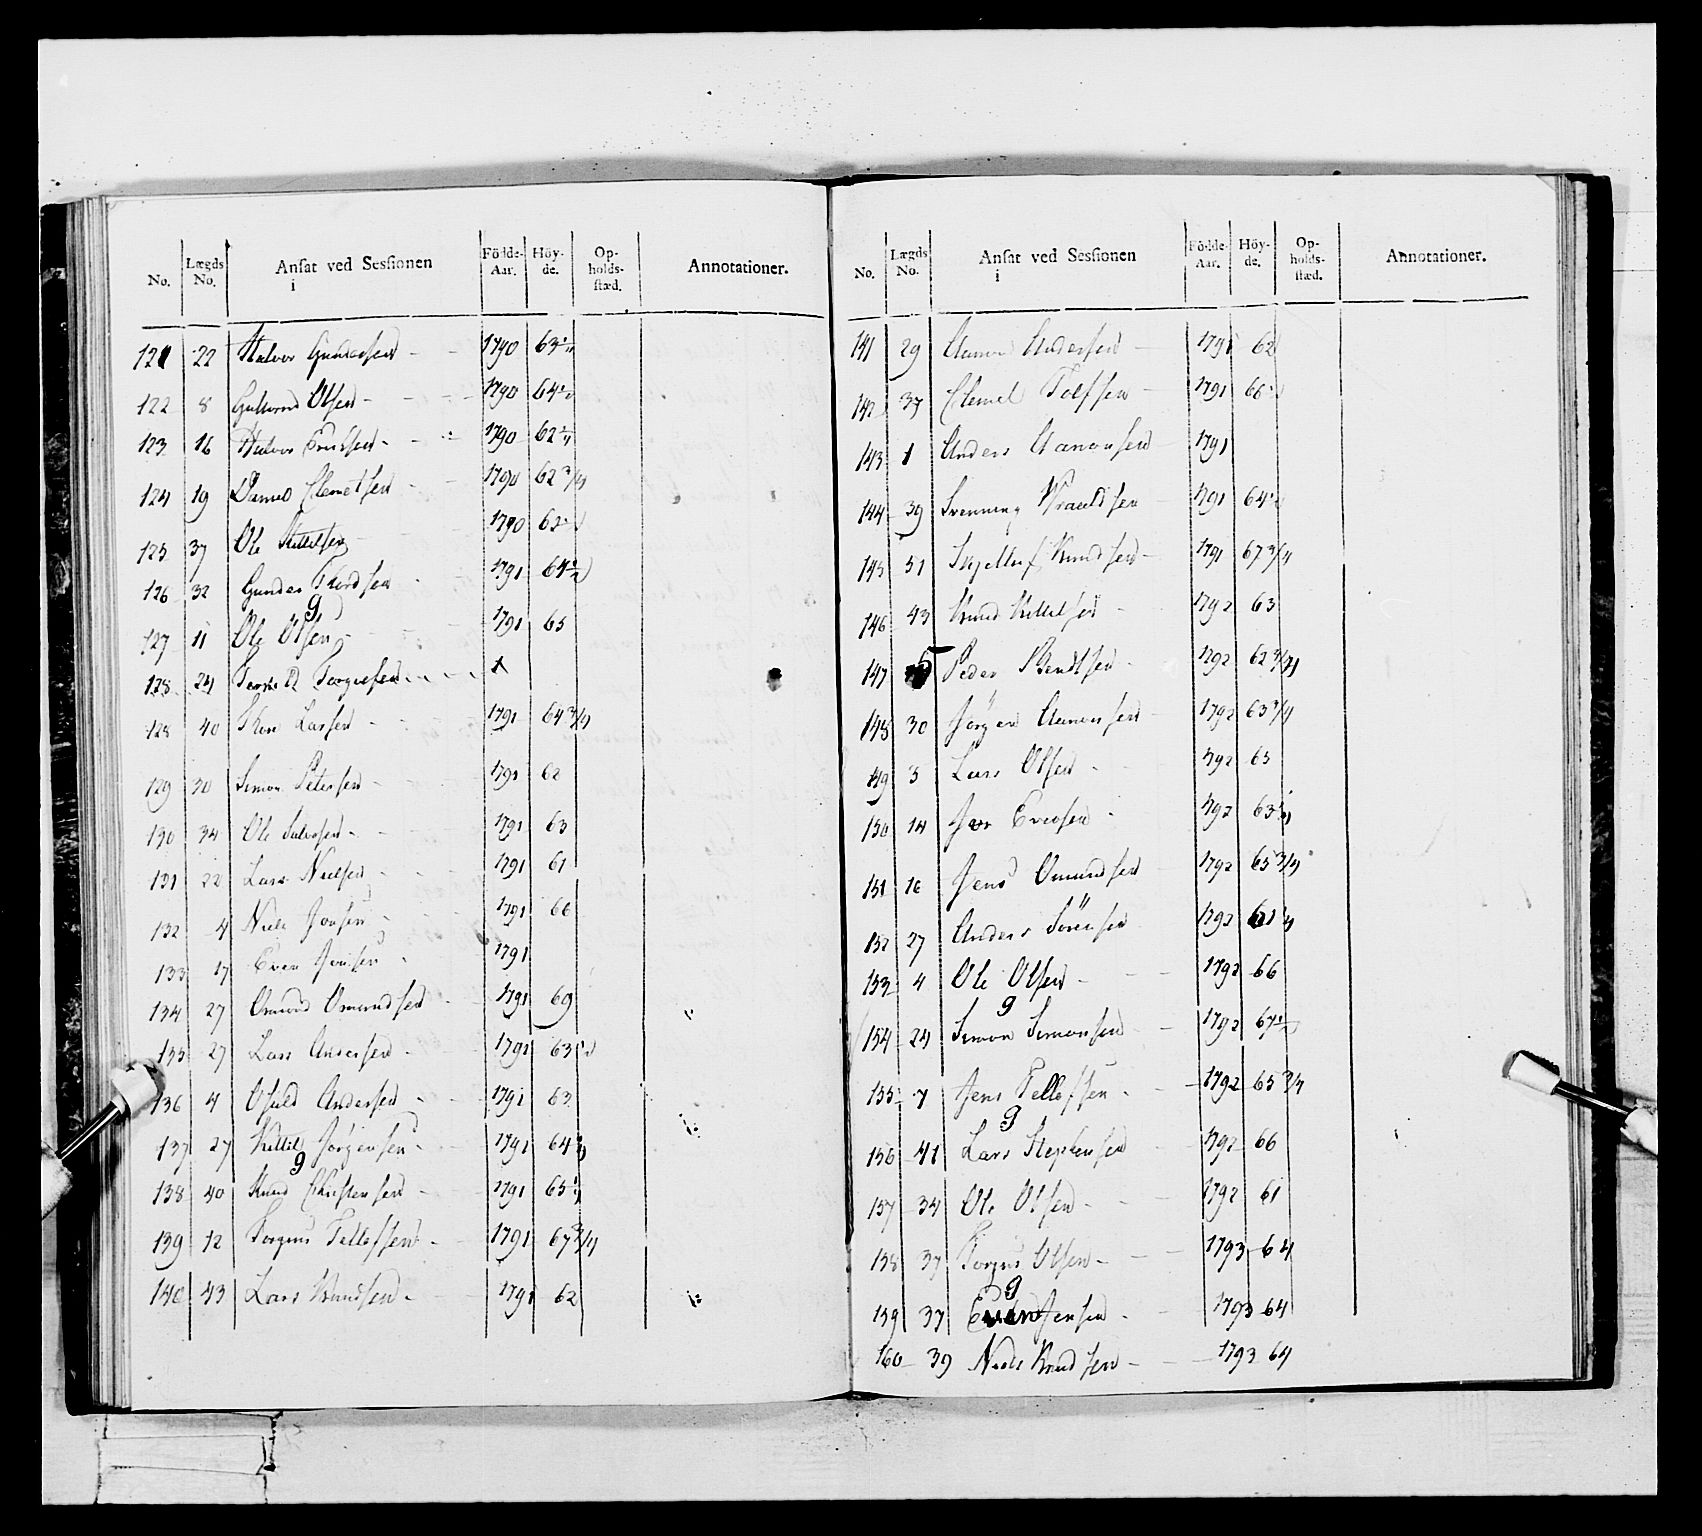 No. Lægds No. Ansat ved Sessionen i Födde-Aar. Höy-de. Op-holds-stæd. Annotationer.
121 22 Halvor Gundersen 1790 63
122 8 Gulmund Olsen 1790 64
123 16 Halvor 1790 62
124 19 Daniel Clemetsen 1790 62 3/4
125 37 Ole Kittelsen 1790 62
126 32 Gunder 1791 64 1/2
127 11 Ole Olsen 1791 65
128 24 Torgiusen x
128 40 Larsen 1791 64 3/4
129 30 Simon Petersen 1791 62
130 34 Ole Salvesen 1791 63
131 22 Lars Nielsen 1791 61
132 4 Niels Jonsen 1791 66
133 17 Even Jonsen 1791
134 27 Omund Omundsen 1791 69
135 27 Lars Andersen 1791 63
136 4 Osuld Andersen 1791 63
137 27 Kittel Jörgensen 1791 64
138 40 Knud Christensen 1791 65
139 12 Torgius Tellefsen 1791 67 3/4
140 43 Lars Knudsen 1791 62
No. Lægds No. Ansat ved Sessionen i Födde-Aar. Höy-de. Op-holds-stæd. Annotationer.
141 29 Aanon Andersen 1791 62
142 37 Clemet 1791 66
143 1 Anders Aanonsen 1791
144 39 Svenning 1791 64
145 51 Knudsen 1791 67 3/4
146 43 Knud Kittelsen 1792 63
147 5 Peder Bendtsen 1792 62 3/4
148 30 Jörgen Aanonsen 1792 63 3/4
149 3 Lars Olsen 1792 63
150 14 Evensen 1792 63
151 16 Jens Omundsen 1792 65 3/4
152 27 Anders Sörensen 1792
153 4 Ole Olsen 1792 66
154 24 Simon Simonsen 1792 67
155 7 Jens Tellefsen 1792 65 3/4
156 41 Lars Stephensen 1792 66
157 34 Ole Olsen 1792 61
158 37 Torgius Olsen 1793 64
159 37 Even Jensen 1793 64
160 39 Niels Knudsen 1793 64